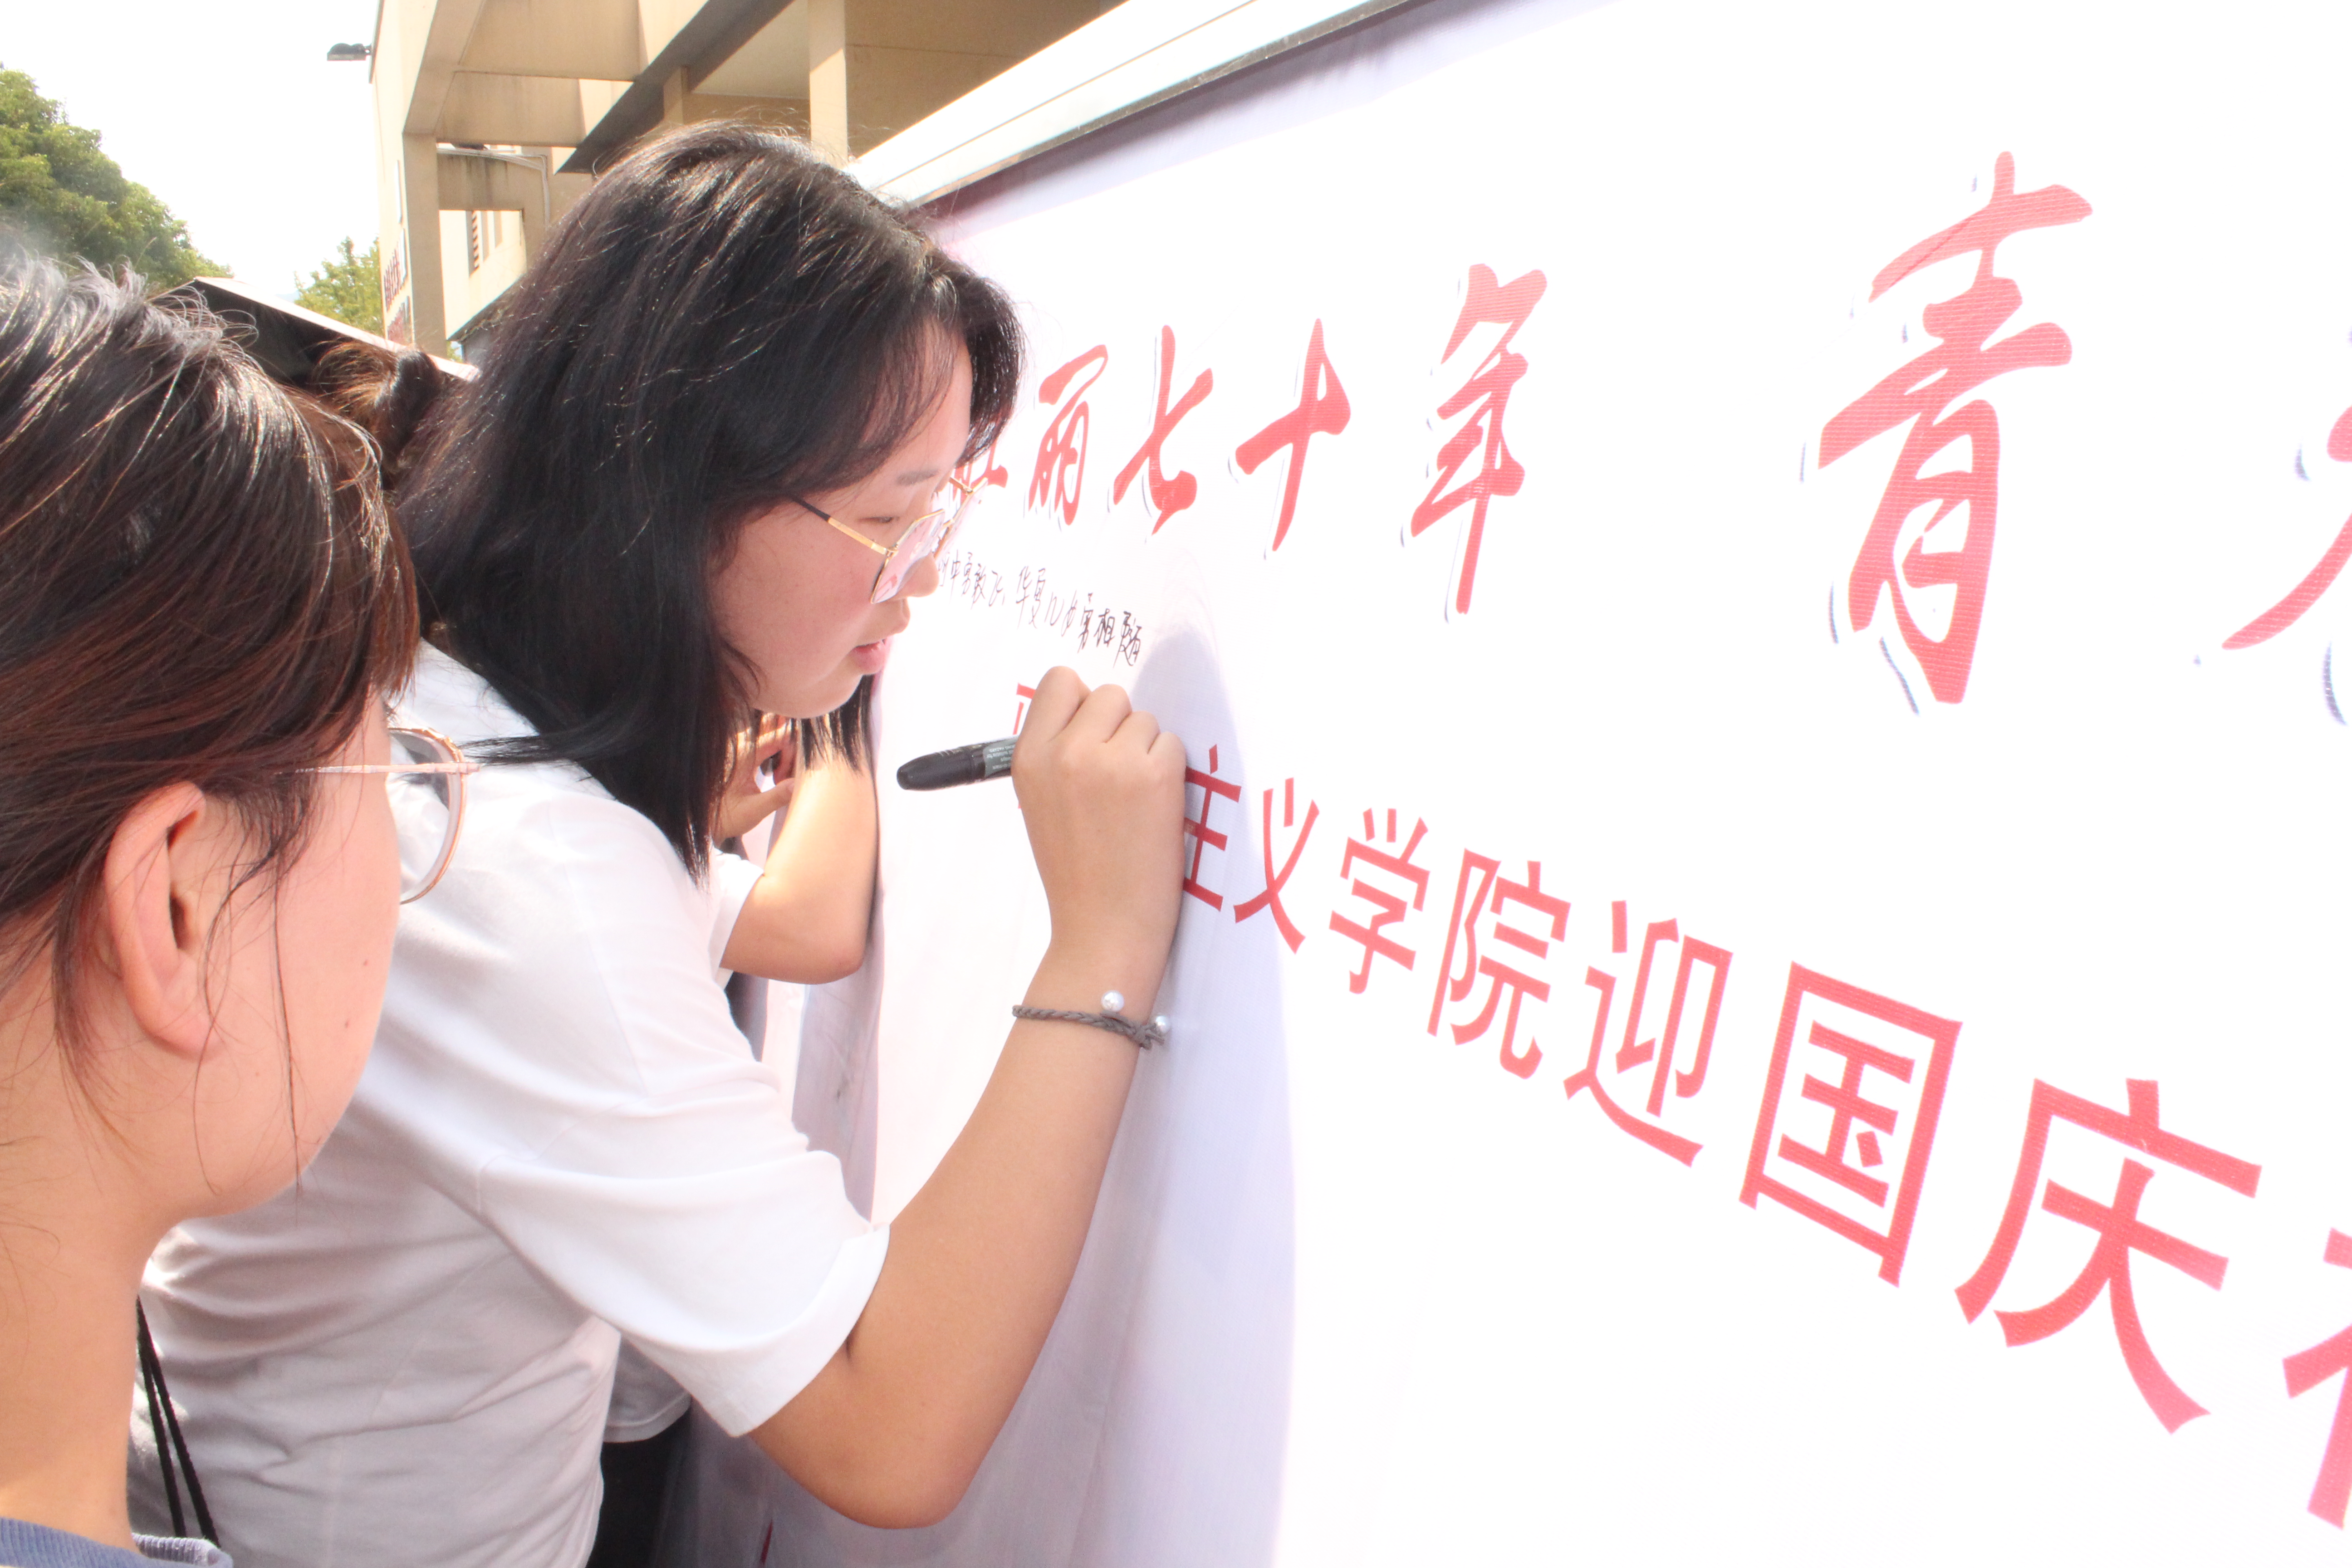 壮丽七十年 青
中勇敢飞,华夏儿女勇相随
主义学院迎国庆